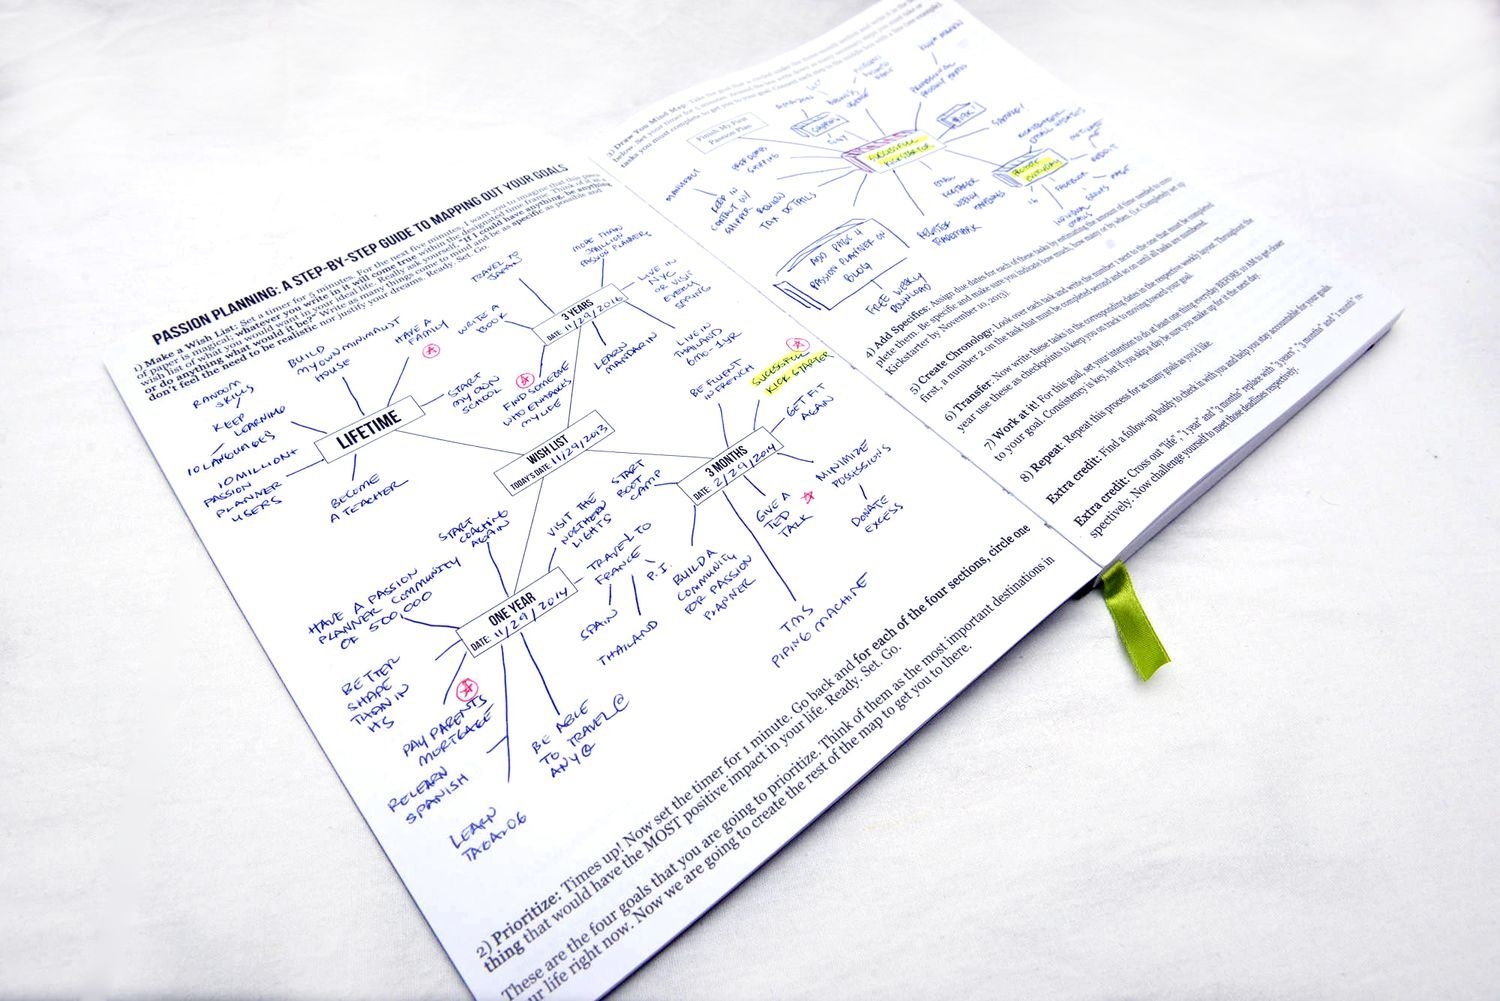 PASSION PLANNING: A STEP-BY-STEP GUIDE TO MAPPING OUT YOUR GOALS
1) Make a Wish List: Set a timer for 5 minutes. For the next five minutes, I want you to imagine that this piece
of paper is magical: whatever you write in it will come true within the designated time frame. Think of it as a
wish list of what you would want in your ideal life. Really ask yourself, "If I could have anything, be anything
or do anything what would it be?" Write as many things come to mind and be as specific as possible and
don't feel the need to be realistic nor justify your dreams. Ready. Set. Go.
LIFETIME
RANDOM
SKILLS
KEEP
LEARNING
10 LANGUAGES
10 MILLION+
PASSION
PLANNER
USERS
BECOME
A TEACHER
BUILD
MY OWN MINIMALIST
HOUSE
HAVE A
FAMILY
START
MY OWN
SCHOOL
3 YEARS
DATE: 11/29/2016
WRITE A
BOOK
TRAVEL TO
JAPAN
MORE THAN
MILLION
PASSION PLANNERS
LIVE IN
NYC
OR VISIT
EVERY
SPRING
LIVE IN
THAILAND
6MO-1YR
LEARN
MANDARIN
FIND SOMEONE
WHO ENHANCES
MY LIFE
WISH LIST
TODAY'S DATE: 11/29/2013
3 MONTHS
DATE: 2/29/2014
BE FLUENT
IN FRENCH
SUCCESSFUL
KICKSTARTER
GET FIT
AGAIN
MINIMIZE
POSSESSIONS
DONATE
EXCESS
GIVE A
TED
TALK
TMS
PIPING MACHINE
BUILD A
COMMUNITY
FOR PASSION
PLANNER
START
BOOT
CAMP
ONE YEAR
DATE: 11/29/2014
START
COACHING
AGAIN
VISIT THE
NORTHERN
LIGHTS
TRAVEL TO
FRANCE
P.I.
SPAIN
THAILAND
HAVE A PASSION
PLANNER COMMUNITY
OF 500,000
BETTER
SHAPE
THAN IN
HS
PAY PARENTS
MORTGAGE
RELEARN
SPANISH
LEARN
TAGALOG
BE ABLE
TO TRAVEL @
ANY @
2) Prioritize: Times up! Now set the timer for 1 minute. Go back and for each of the four sections, circle one
thing that would have the MOST positive impact in your life. Ready. Set. Go.
These are the four goals that you are going to prioritize. Think of them as the most important destinations in
ur life right now. Now we are going to create the rest of the map to get you to there.
3) Draw You Mind Map: Take the goal that
Finish My First
Passion Plan
SUCCESSFUL
KICKSTARTER
KEEP IN
CONTACT W/
SHIPPER
REVIEW
TAX DETAILS
REGISTER
TRADEMARK
ADD PAGE 4
PASSION PLANNER ON
BLOG
FREE WEEKLY
DOWNLOAD
EVERYDAY
FACEBOOK
REDDIT
4) Add Specifics: Assign due dates for each of these tasks by estimating the amount of time needed to com-
plete them. Be specific and make sure you indicate how much, how many or by when. (i.e. Completely set up
Kickstarter by November 10, 2013).
5) Create Chronology: Look over each task and write the number 1 next to the one that must be completed
first, a number 2 on the task that must be completed second and so on until all tasks are numbered.
6) Transfer: Now write these tasks in the corresponding dates in the respective weekly layout. Throughout the
year use these as checkpoints to keep you on track to moving toward your goal.
7) Work at it! For this goal, set your intention to do at least one thing everyday BEFORE 10 AM to get closer
to your goal. Consistency is key, but if you skip a day be sure you make up for it the next day.
8) Repeat: Repeat this process for as many goals as you'd like.
Extra credit: Find a follow-up buddy to check in with you and help you stay accountable for your goals.
Extra credit: Cross out "life", "1 year" and "3 months" replace with "3 years" "3 months" and "1 month" re-
spectively. Now challenge yourself to meet those deadlines respectively.